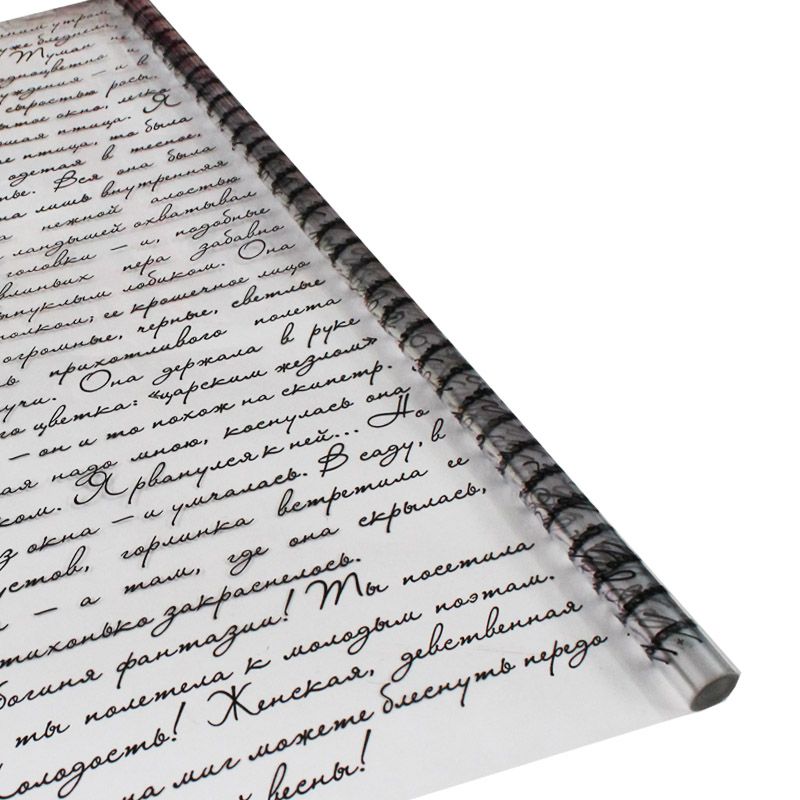 нним утром
уже бледнела,
Туман не
одноцветно и
уждения — и в
сыростью росы.
ытое окно, легко
ьшая птица. Я
е птица, то была
одетая в тесное,
тье. Вся она была
та лишь внутренняя
а нежной алостью
ландышей охватывал
головки — и, подобные
влиных пера забавно
ыпуклым лобиком. Она
толком; ее крошечное лицо
огромные, черные, светлые
ь прихотливого полета
учи. Она держала в руке
го цветка: «царским жезлом»
— он и то похож на скипетр.
ая надо мною, коснулась она
ком. Я рванулся к ней... Но
з окна — и умчалась. В саду, в
устов, горлинка встретила ее
— а там, где она скрылась,
тихонько закраснелось.
богиня фантазии! Ты посетила
ты полетела к молодым поэтам.
Молодость! Женская, девственная
на миг можете блеснуть передо
весны!